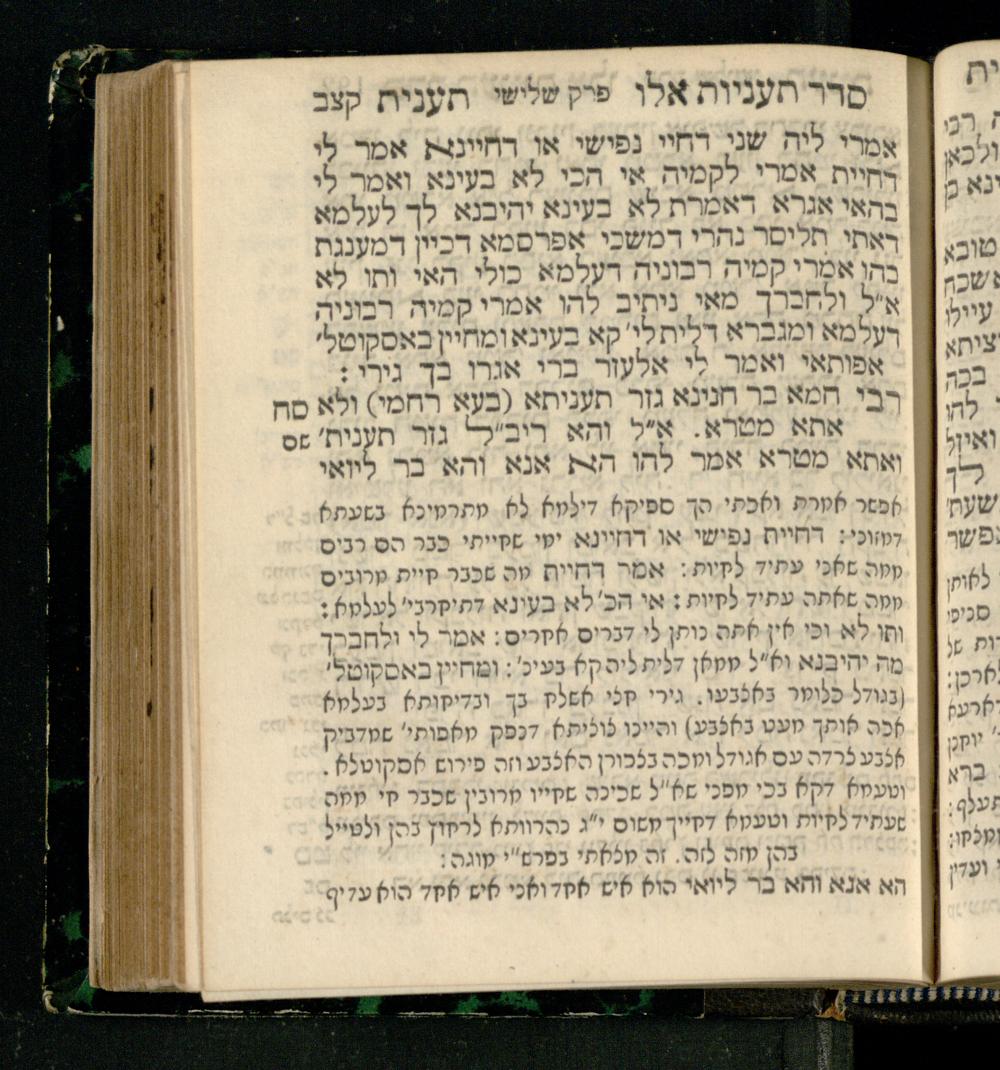 סדר תעניות אלו פרק שלישי תענית קצב
אמרי ליה שני דחיי נפישי או דחיינא אמר לי
דחיית אמרי לקמיה אי הכי לא בעינא ואמר לי
בהאי אגרא דאמרת לא בעינא יהיבנא לך לעלמא
דאתי תליסר נהרי דמשכי אפרסמא דכיין דמענגת
בהו אמרי קמיה רבוניה דעלמא כולי האי ותו לא
א״ל ולחברך מאי ניתיב להו אמרי קמיה רבוניה
דעלמא ומגברא דלית לי׳ קא בעינא ומחיין באסקוטל׳
אפותאי ואמר לי אלעזר ברי אגרו בך גירי :
רבי חמא בר חנינא גזר תעניתא (בעא רחמי) ולא סח
אתא מטרא. א״ל והא ריב״ל גזר תענית׳ שס
ואתא מטרא אמר להו הא אנא והא בר ליואי
אפשר אמרת ואכתי הך ספיקא דילמא לא מתרמינא בשעתא
דמזוני : דחיית נפישי או דחיינא ימי שחייתי כבר הם רבים
ממה שאני עתיד לחיות : אמר דחיית מה שכבר חיית מרובים
ממה שאתה עתיד לחיות : אי הכ׳ לא בעינא דתיחרבי׳ לעלמא :
ותו לא וכי אין אתה נותן לי דברים אחרים : אמר לי ולחברך
מה יהיבנא וא״ל ממאן דלית ליה קא בעינ׳ : ומחיין באסקוטל׳
(בגודל כלומר באצבעו. גירי חלי אשלח בך ובדיחותא בעלמא
אכה אותך מעט באצבע) והיינו צוציתא דנפק מאפותי׳ שמדביק
אצבע צרדה עם אגודל ומכה בצפורן האצבע וזה פירוש אסקוטלא.
וטעמא דקא בכי מפני שא״ל שכינה שחייו מרובין שכבר חי ממה
שעתיד לחיות וטעמא דחייך משום י״ג נהרוותא לרחוץ בהן ולטייל
בהן מזה לזה. זה מצאתי בפרש״י מוגה :
הא אנא והא בר ליואי הוא איש אחד ואני איש אחד הוא עדיף